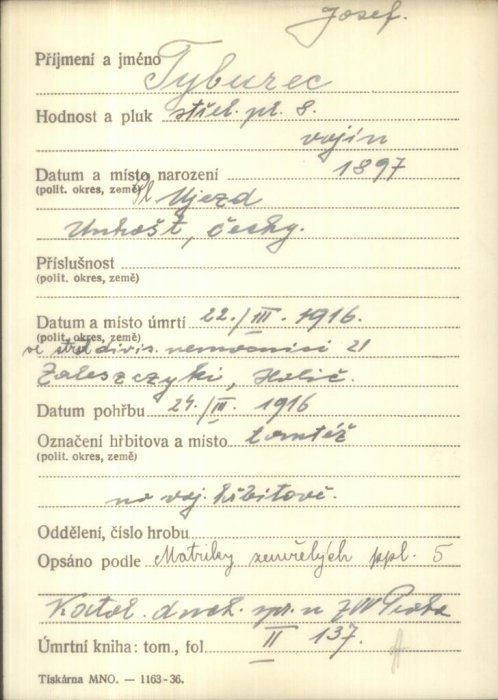 Josef.
Příjmení a jméno Tyburec
Hodnost a pluk střel. pl. 8.
vojín
Datum a místo narození 1897
(polit. okres, země) Ujezd
Unhošt, Čechy.
Příslušnost
(polit. okres, země)
Datum a místo úmrtí 22./III. 1916.
(polit. okres, země)
ve střel. divis. nemocnici 21
Zaleszczyki, Halič.
Datum pohřbu 24./III. 1916
Označení hřbitova a místo tamtéž
(polit. okres, země)
na voj. hřbitově.
Oddělení, číslo hrobu
Opsáno podle Matriky zemřelých ppl. 5
Katol. duch. spr. u ZVV Praha
Úmrtní kniha: tom., fol. II 137.
Tiskárna MNO. — 1163-36.